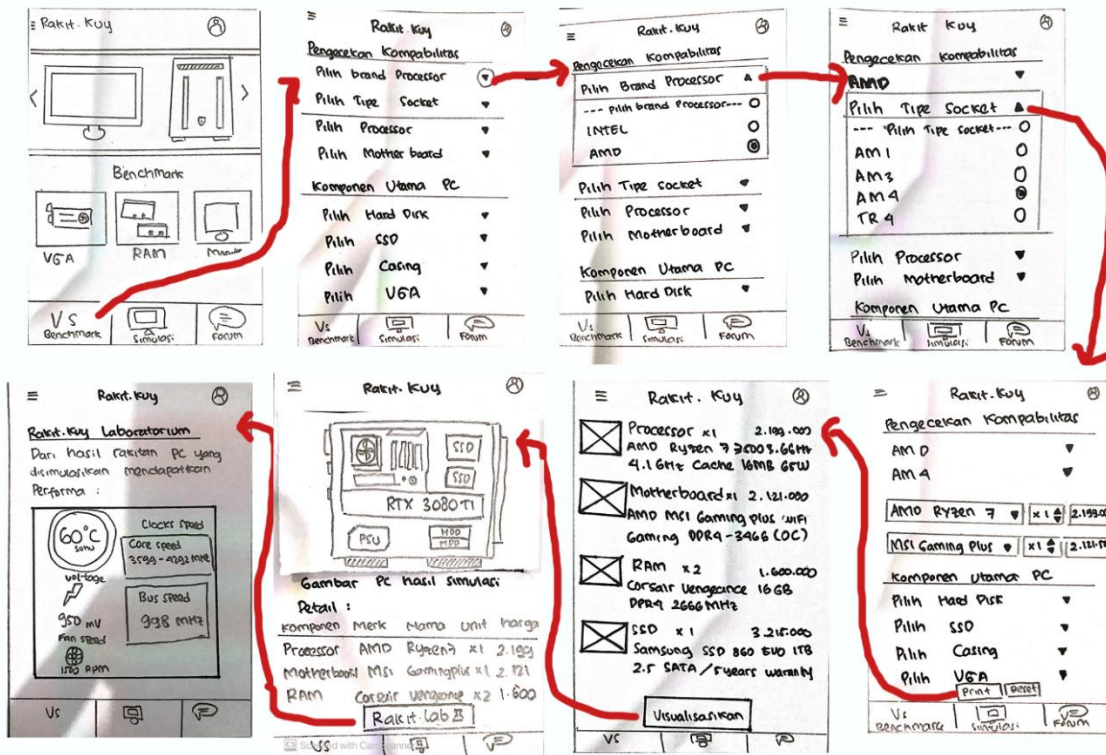 Rakit. Kuy
Benchmark
VGA
RAM
Vs
Benchmark
Simulasi
Forum
Rakit. Kuy
Pengecekan Kompabilitas
Pilih brand Processor
Pilih Tipe Socket
Pilih Processor
Pilih Mother board
Komponen Utama PC
Pilih Hard Disk
Pilih SSD
Pilih Casing
Pilih VGA
Vs
Benchmark
Simulasi
Forum
Rakit. Kuy
Pengecekan Kompabilitas
Pilih Brand Processor
--- Pilih brand Processor---
INTEL
AMD
Pilih Tipe Socket
Pilih Processor
Pilih Motherboard
Komponen Utama PC
Pilih Hard Disk
Vs
Benchmark
Simulasi
Forum
Rakit. Kuy
Pengecekan Kompabilitas
AMD
Pilih Tipe Socket
--- Pilih Tipe Socket---
AM 1
AM 3
AM 4
TR 4
Pilih Processor
Pilih Motherboard
Komponen Utama PC
Vs
Benchmark
Simulasi
Forum
Rakit. Kuy
Rakit. Kuy Laboratorium
Dari hasil rakitan PC yang
disimulasikan mendapatkan
Performa :
60°C
suhu
voltage
950 mV
Fan speed
1500 RPM
Clocks speed
Core speed
3599 - 4292 MHz
Bus speed
998 MHz
Vs
Rakit. Kuy
SSD
SSD
RTX 3080 TI
PSU
HDD
HDD
Gambar PC hasil simulasi
Detail :
Komponen Merk Nama Unit harga
Processor AMD Ryzen7 x1 2.199
Motherboard MSI Gamingplus x1 2.121
RAM Corsair Vengeance x2 1.600
Rakit.Lab
CS Scanned with CamScanner
VS
Rakit. Kuy
Processor x1 2.199.000
AMD Ryzen 7
4.1 GHz Cache 16MB 65W
Motherboard x1 2.121.000
AMD MSI Gaming plus WiFi
Gaming DDR4-3466 (OC)
RAM x2 1.600.000
Corsair Vengeance 16GB
DDR4 2666 MHz
SSD x 1 3.215.000
Samsung SSD 860 EVO 1TB
2.5 SATA / 5years warranty
Visualisasikan
VS
Rakit. Kuy
Pengecekan Kompabilitas
AM D
AM 4
AMD Ryzen 7 x1 2.199.00
MSI Gaming Plus x1
Komponen Utama PC
Pilih Hard Disk
Pilih SSD
Pilih Casing
Pilih VGA
Print Reset
Vs
Benchmark
Simulasi
Forum